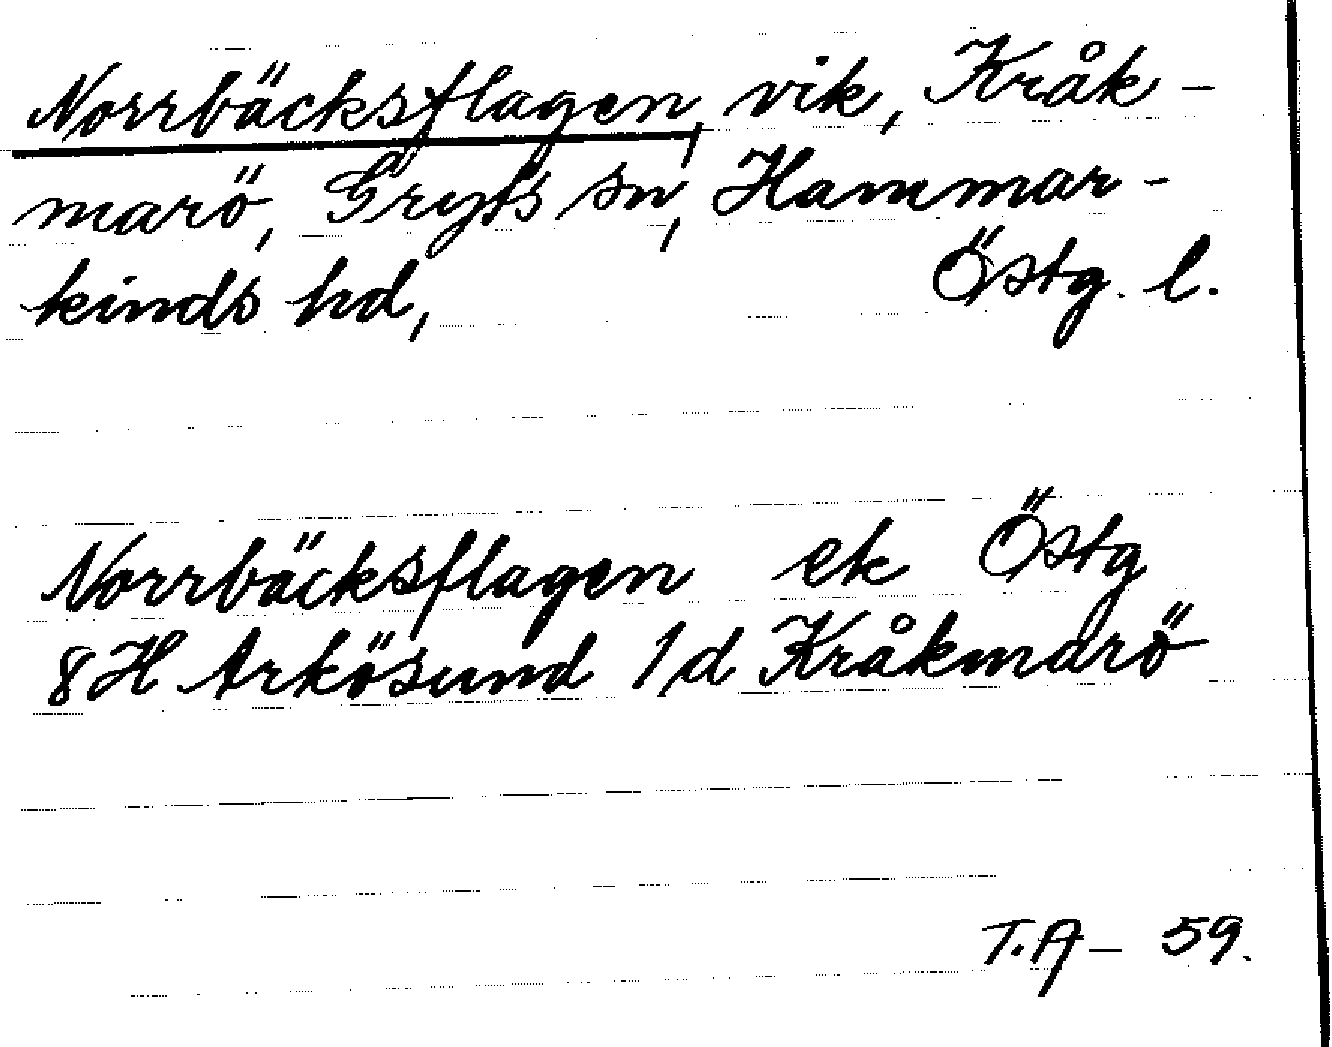 Norrbäcksflagen, vik, Kråk-
marö, Gryts sn, Hammar-
kinds hd, Östg. l.
Norrbäcksflagen ek Östg
8H Arkösund 1d Kråkmarö
T.A - 59.